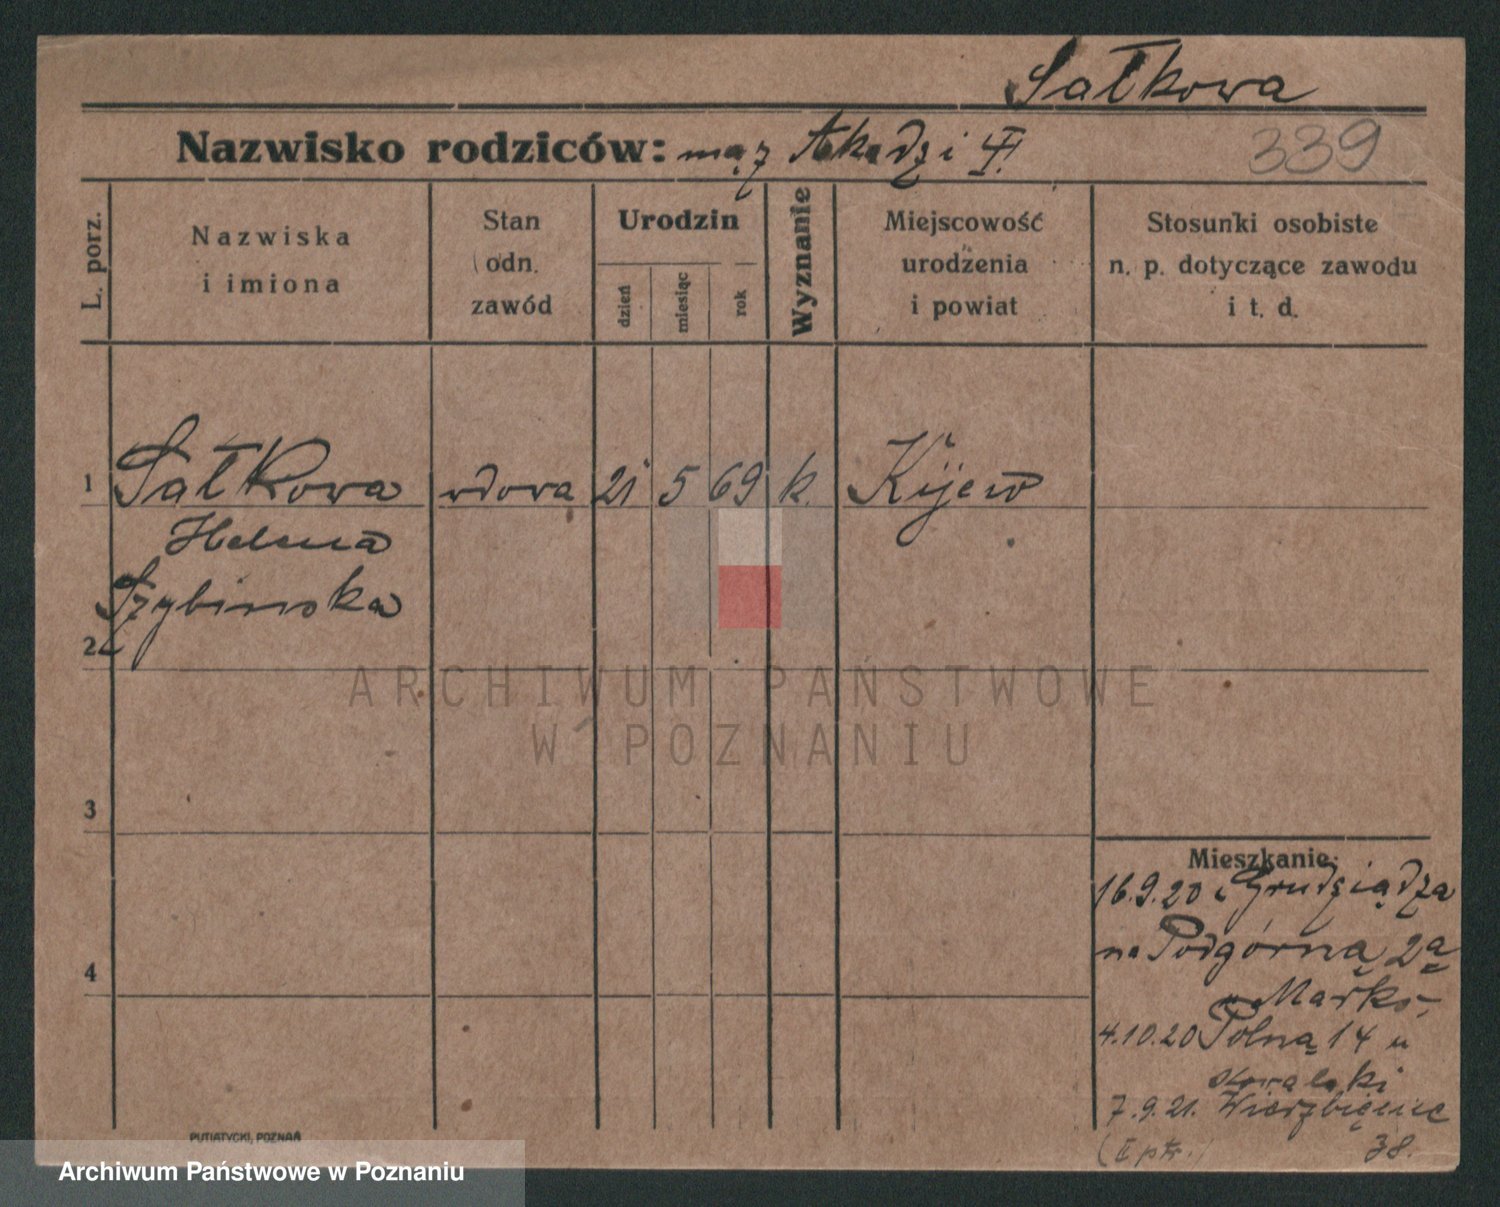 Sałkowa
Nazwisko rodziców: mąż
339
L. porz.
Nazwiska
i imiona
Stan
odn.
zawód
Urodzin
dzień
miesiąc
rok
Wyznanie
Miejscowość
urodzenia
i powiat
Stosunki osobiste
n. p. dotyczące zawodu
i t. d.
1 Sałkowa wdowa 21 5 69 k. Kijew
Helena
2
3
4
ARCHIWUM PAŃSTWOWE
W POZNANIU
Mieszkanie:
16.9.20 z Grudziądza
na Podgórną 2a
u Marko-
4.10.20 Polną 14 u
7.9.21. Wierzbięcice
(II ptr.) 38.
PUTIATYCKI, POZNAŃ
Archiwum Państwowe w Poznaniu